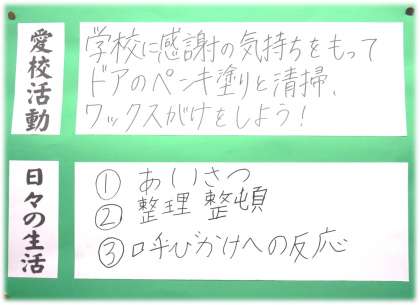 愛校活動
学校に感謝の気持ちをもって
ドアのペンキ塗りと清掃、
ワックスがけをしよう!
日々の生活
① あいさつ
② 整理 整頓
③ 呼びかけへの反応